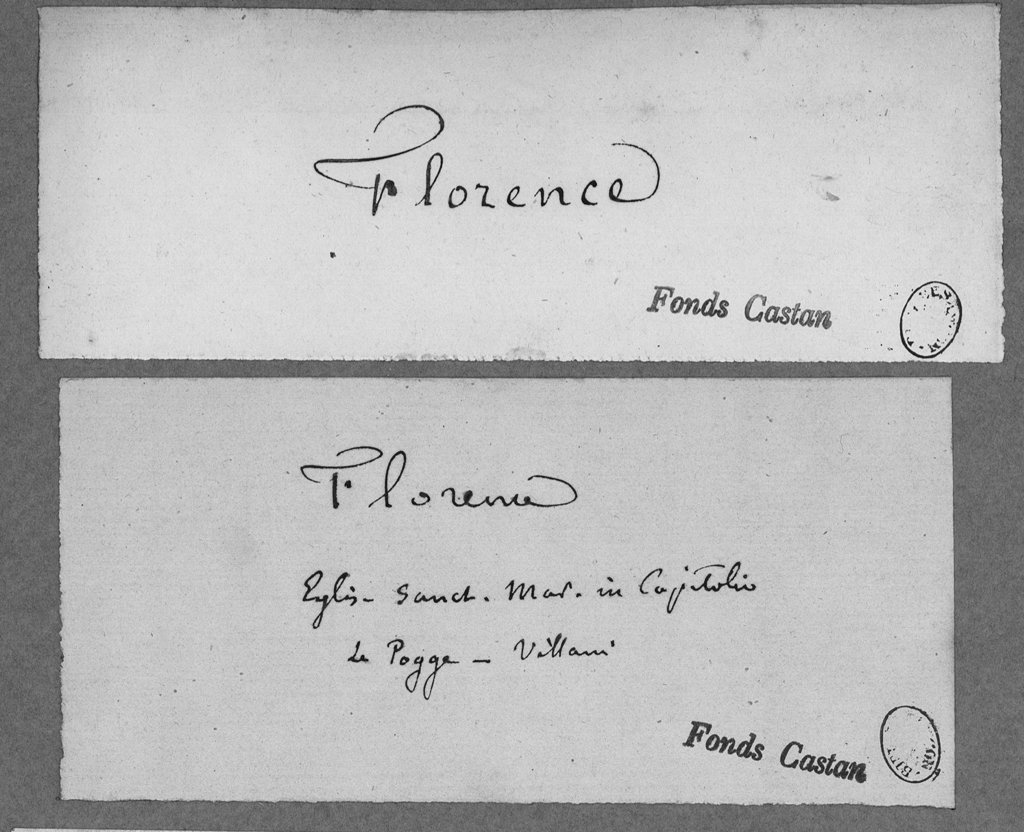 Florence
Fonds Castan
Florence
Eglis- Sanct. Mar. in Capitolio
Le Pogge - Villani
Fonds Castan